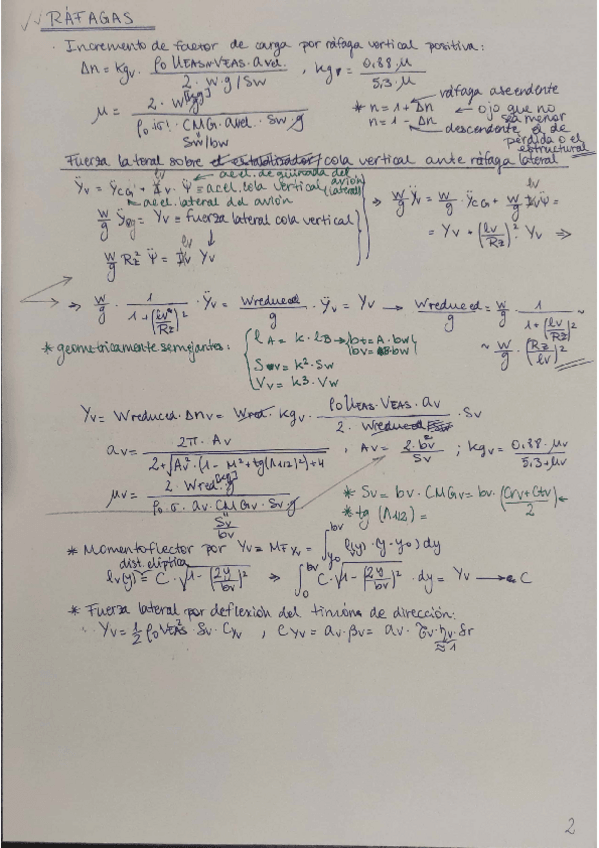 √√ RÁFAGAS
· Incremento de factor de carga por ráfaga vertical positiva:
Δn = Kgv · (ρ0 UEAS VEAS · avel) / (2 · W·g / Sw) , Kgv = (0,88·μ) / (5,3·μ)
μ = (2 · W[kg]) / (ρ0·σ · CMG · avel · Sw·g)
Sw/bw
ráfaga ascendente
* n = 1 + Δn ← ojo que no
n = 1 - Δn sea menor
descendente el de
pérdida o el
estructural
Fuerza lateral sobre cola vertical ante ráfaga lateral
← acel. de guiñada del avión
Ÿv = ŸCG + lv · Ψ̈ = acel. cola vertical (lateral)
acel. lateral del avión
W/g ŸCG = Yv = fuerza lateral cola vertical
W/g Rz² Ψ̈ = lv Yv
⇒ W/g Ÿv = W/g · ŸCG + W/g lv Ψ̈ =
= Yv + (lv/Rz)² · Yv ⇒
⇒ W/g · 1/(1+(lv/Rz)²) · Ÿv = Wreduced/g · Ÿv = Yv → Wreduced/g = W/g · 1/(1+(lv/Rz)²) ~
~ W/g · (Rz/lv)²
* geométricamente semejantes: lA = K · lB → bt = A · bw
bv = bw
Sv = k² · Sw
Vv = k³ · Vw
Yv = Wreduced · Δnv = Wred · Kgv · (ρ0 UEAS · VEAS · av) / (2 · Wreduced) · Sv
av = 2π · Av / (2+√(Av² · (1 - M² + tg(Λ1/2)²) + 4)) , Av = 2·bv² / Sv ; Kgv = (0,88 · μv) / (5,3+μv)
μv = (2 · Wred [kg]) / (ρ0 · σ · av · CMGv · Sv · g)
Sv/bv
* Sv = bv · CMGv = bv · (Crv + Ctv)/2
* tg (Λ1/2) =
* Momento flector por Yv = MFxv = ∫y0^bv l(y) · (y - y0) dy
dist. elíptica
lv(y) = C · √(1-(2y/bv)²) ⇒ ∫0^bv C · √(1-(2y/bv)²) · dy = Yv → C
* Fuerza lateral por deflexión del timón de dirección:
Yv = ½ ρ0 VEAS² · Sv · CYv , CYv = av · βv = av · τv · ηv · δr
≈ 1
2